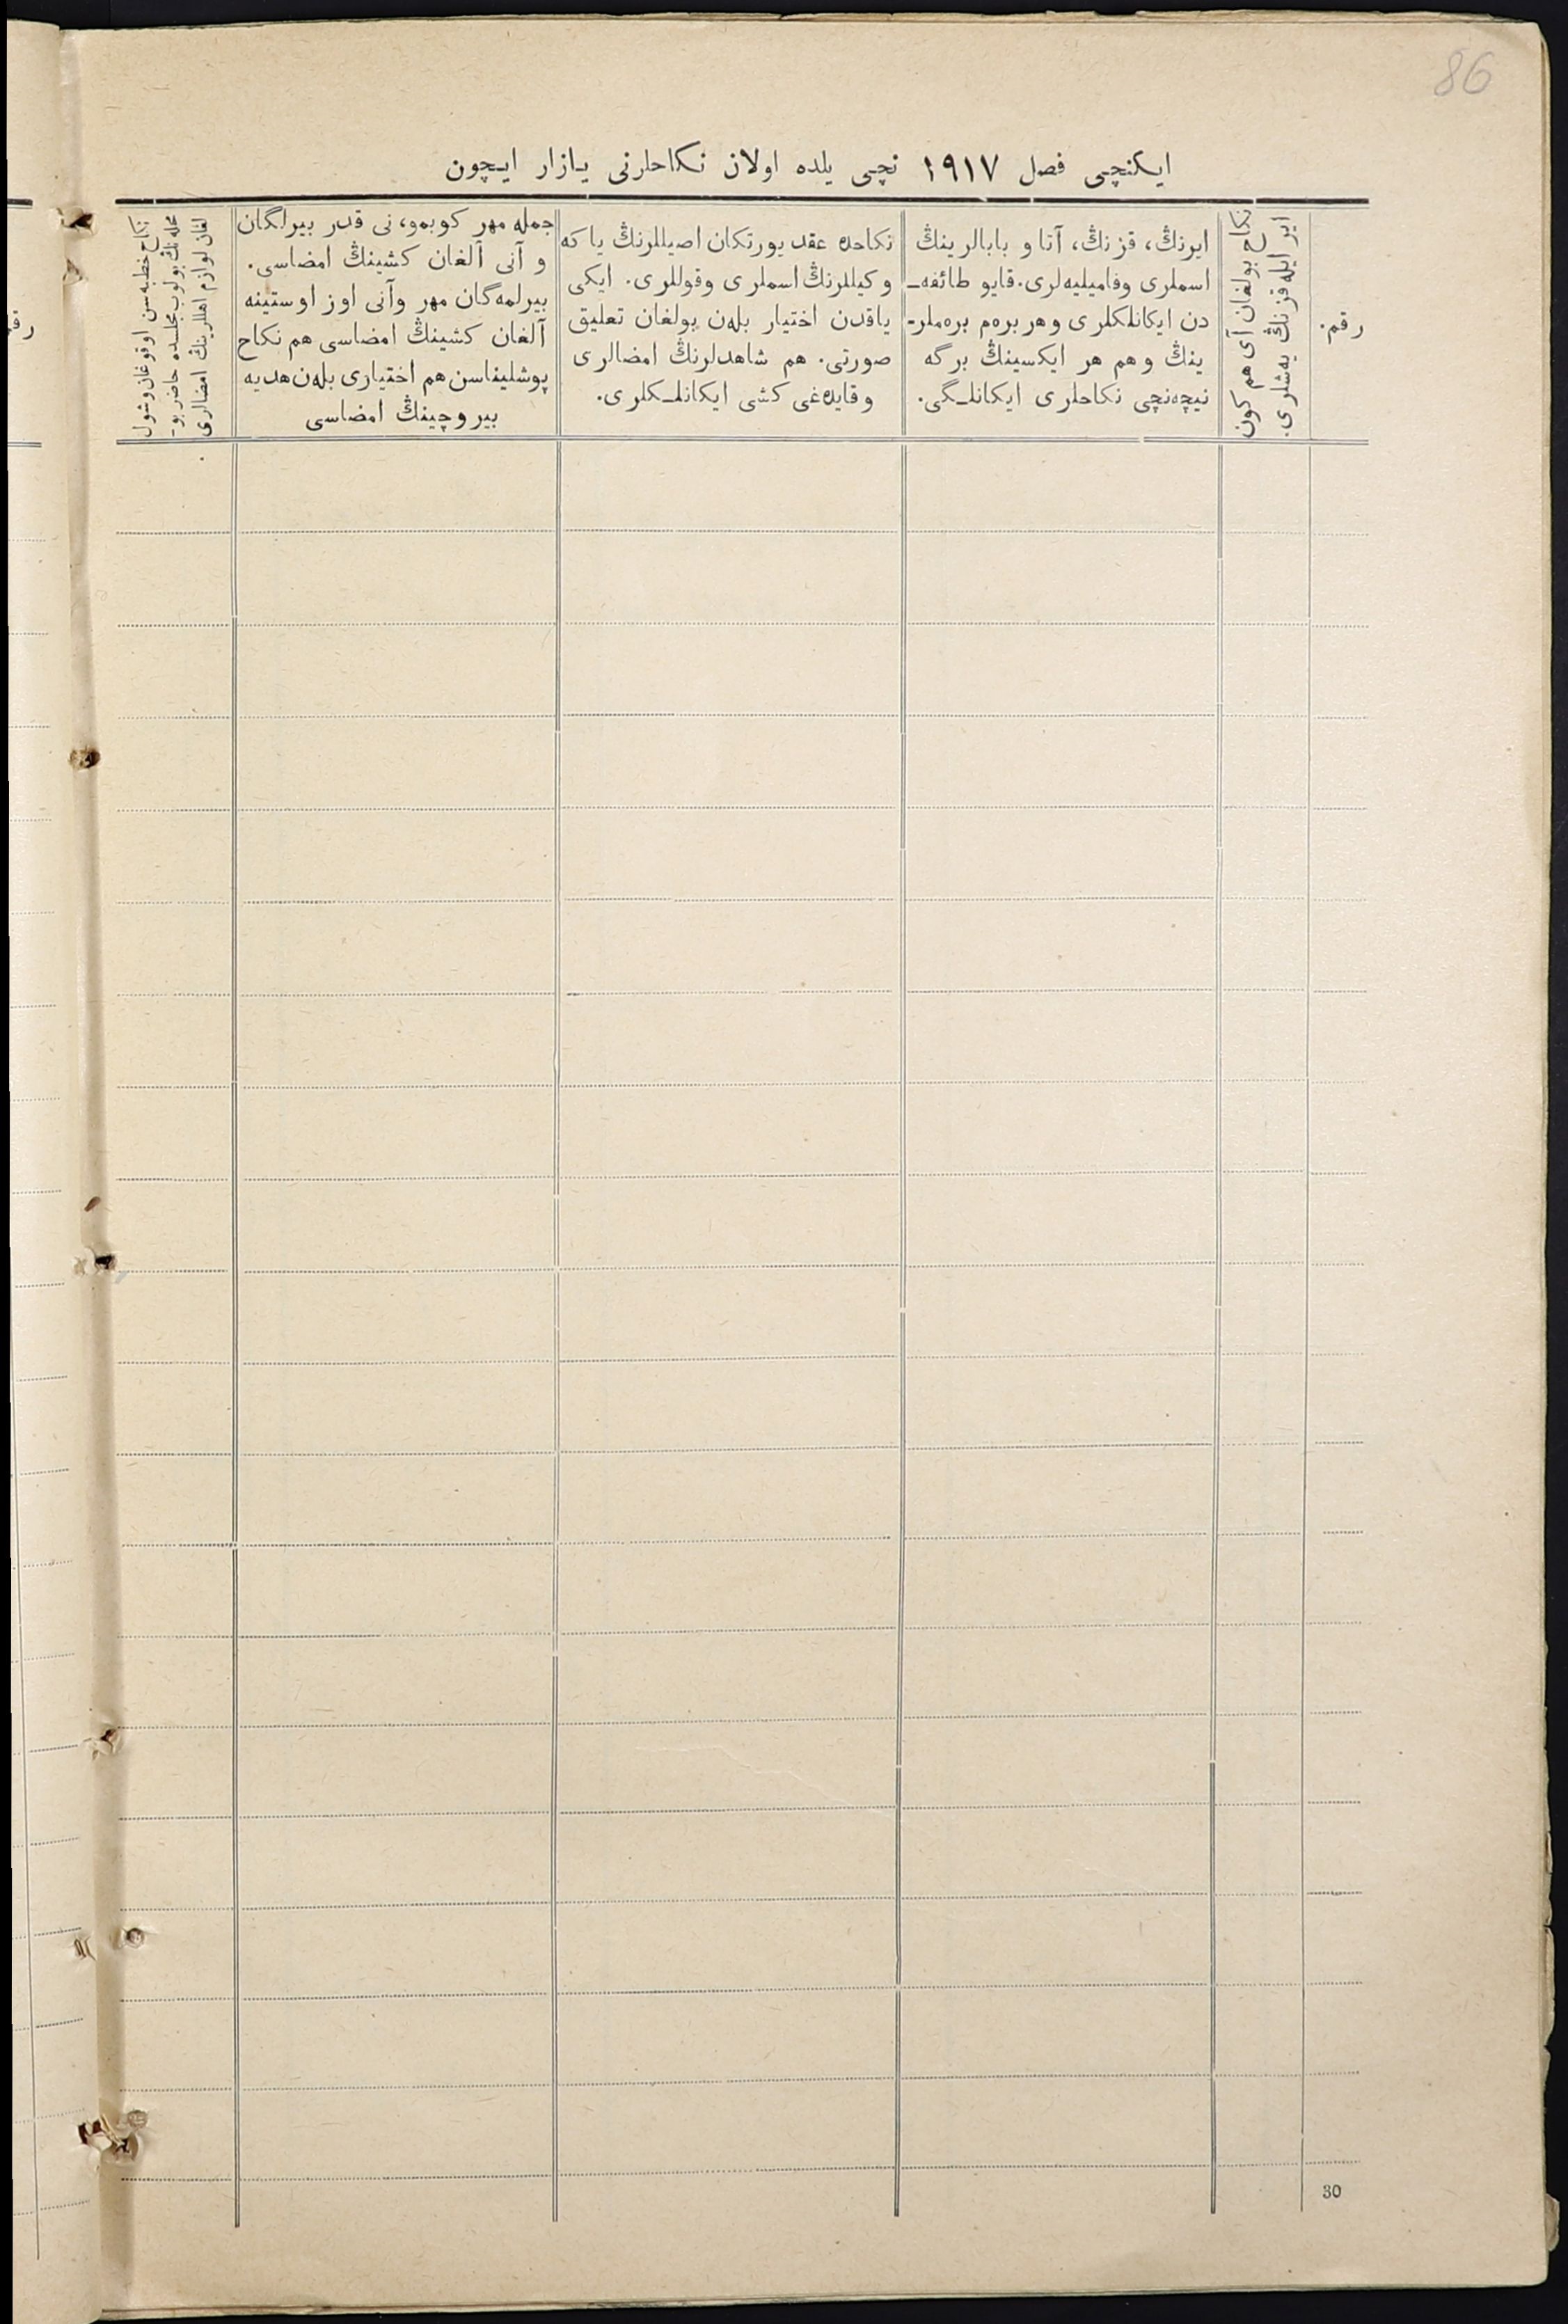 86
ایکنچی فصل ۱۹۱۷ نچی یلده اولان نکاحلرنی یازار ایچون
رقم.
ایر ایله قزنڭ یه‌شلری.
نکاح بولغان آی هم کون
ایرنڭ، قزنڭ، آتا و بابالرینڭ
اسملری وفامیلیه‌لری. قایو طائفه‌ـ
دن ایکانلکلری وهر بره‌م بره‌ملر-
ینڭ وهم هر ایکسینڭ برگه
نیچه‌نچی نکاحلری ایکانلـگی.
نکاحده عقد یورتکان اصیللرنڭ یا که
وکیللرنڭ اسملری وقوللری. ایکی
یاقدن اختیار بله‌ن بولغان تعلیق
صورتی. هم شاهدلرنڭ امضالری
وقایده‌غی کشی ایکانلـکلری.
جمله مهر کوبمو، نی قدر بیرلگان
و آنی آلغان کشینڭ امضاسی.
بیرلمه‌گان مهر وآنی اوز اوستینه
آلغان کشینڭ امضاسی هم نکاح
پوشلیناسن هم اختیاری بله‌ن هدیه
بیروچینڭ امضاسی
نکاح خطبه‌سن اوقوغان وشول
محله‌نڭ بولوب مجلسده حاضر بو-
لغان لوازم اهللرینڭ امضالری
رقم
30